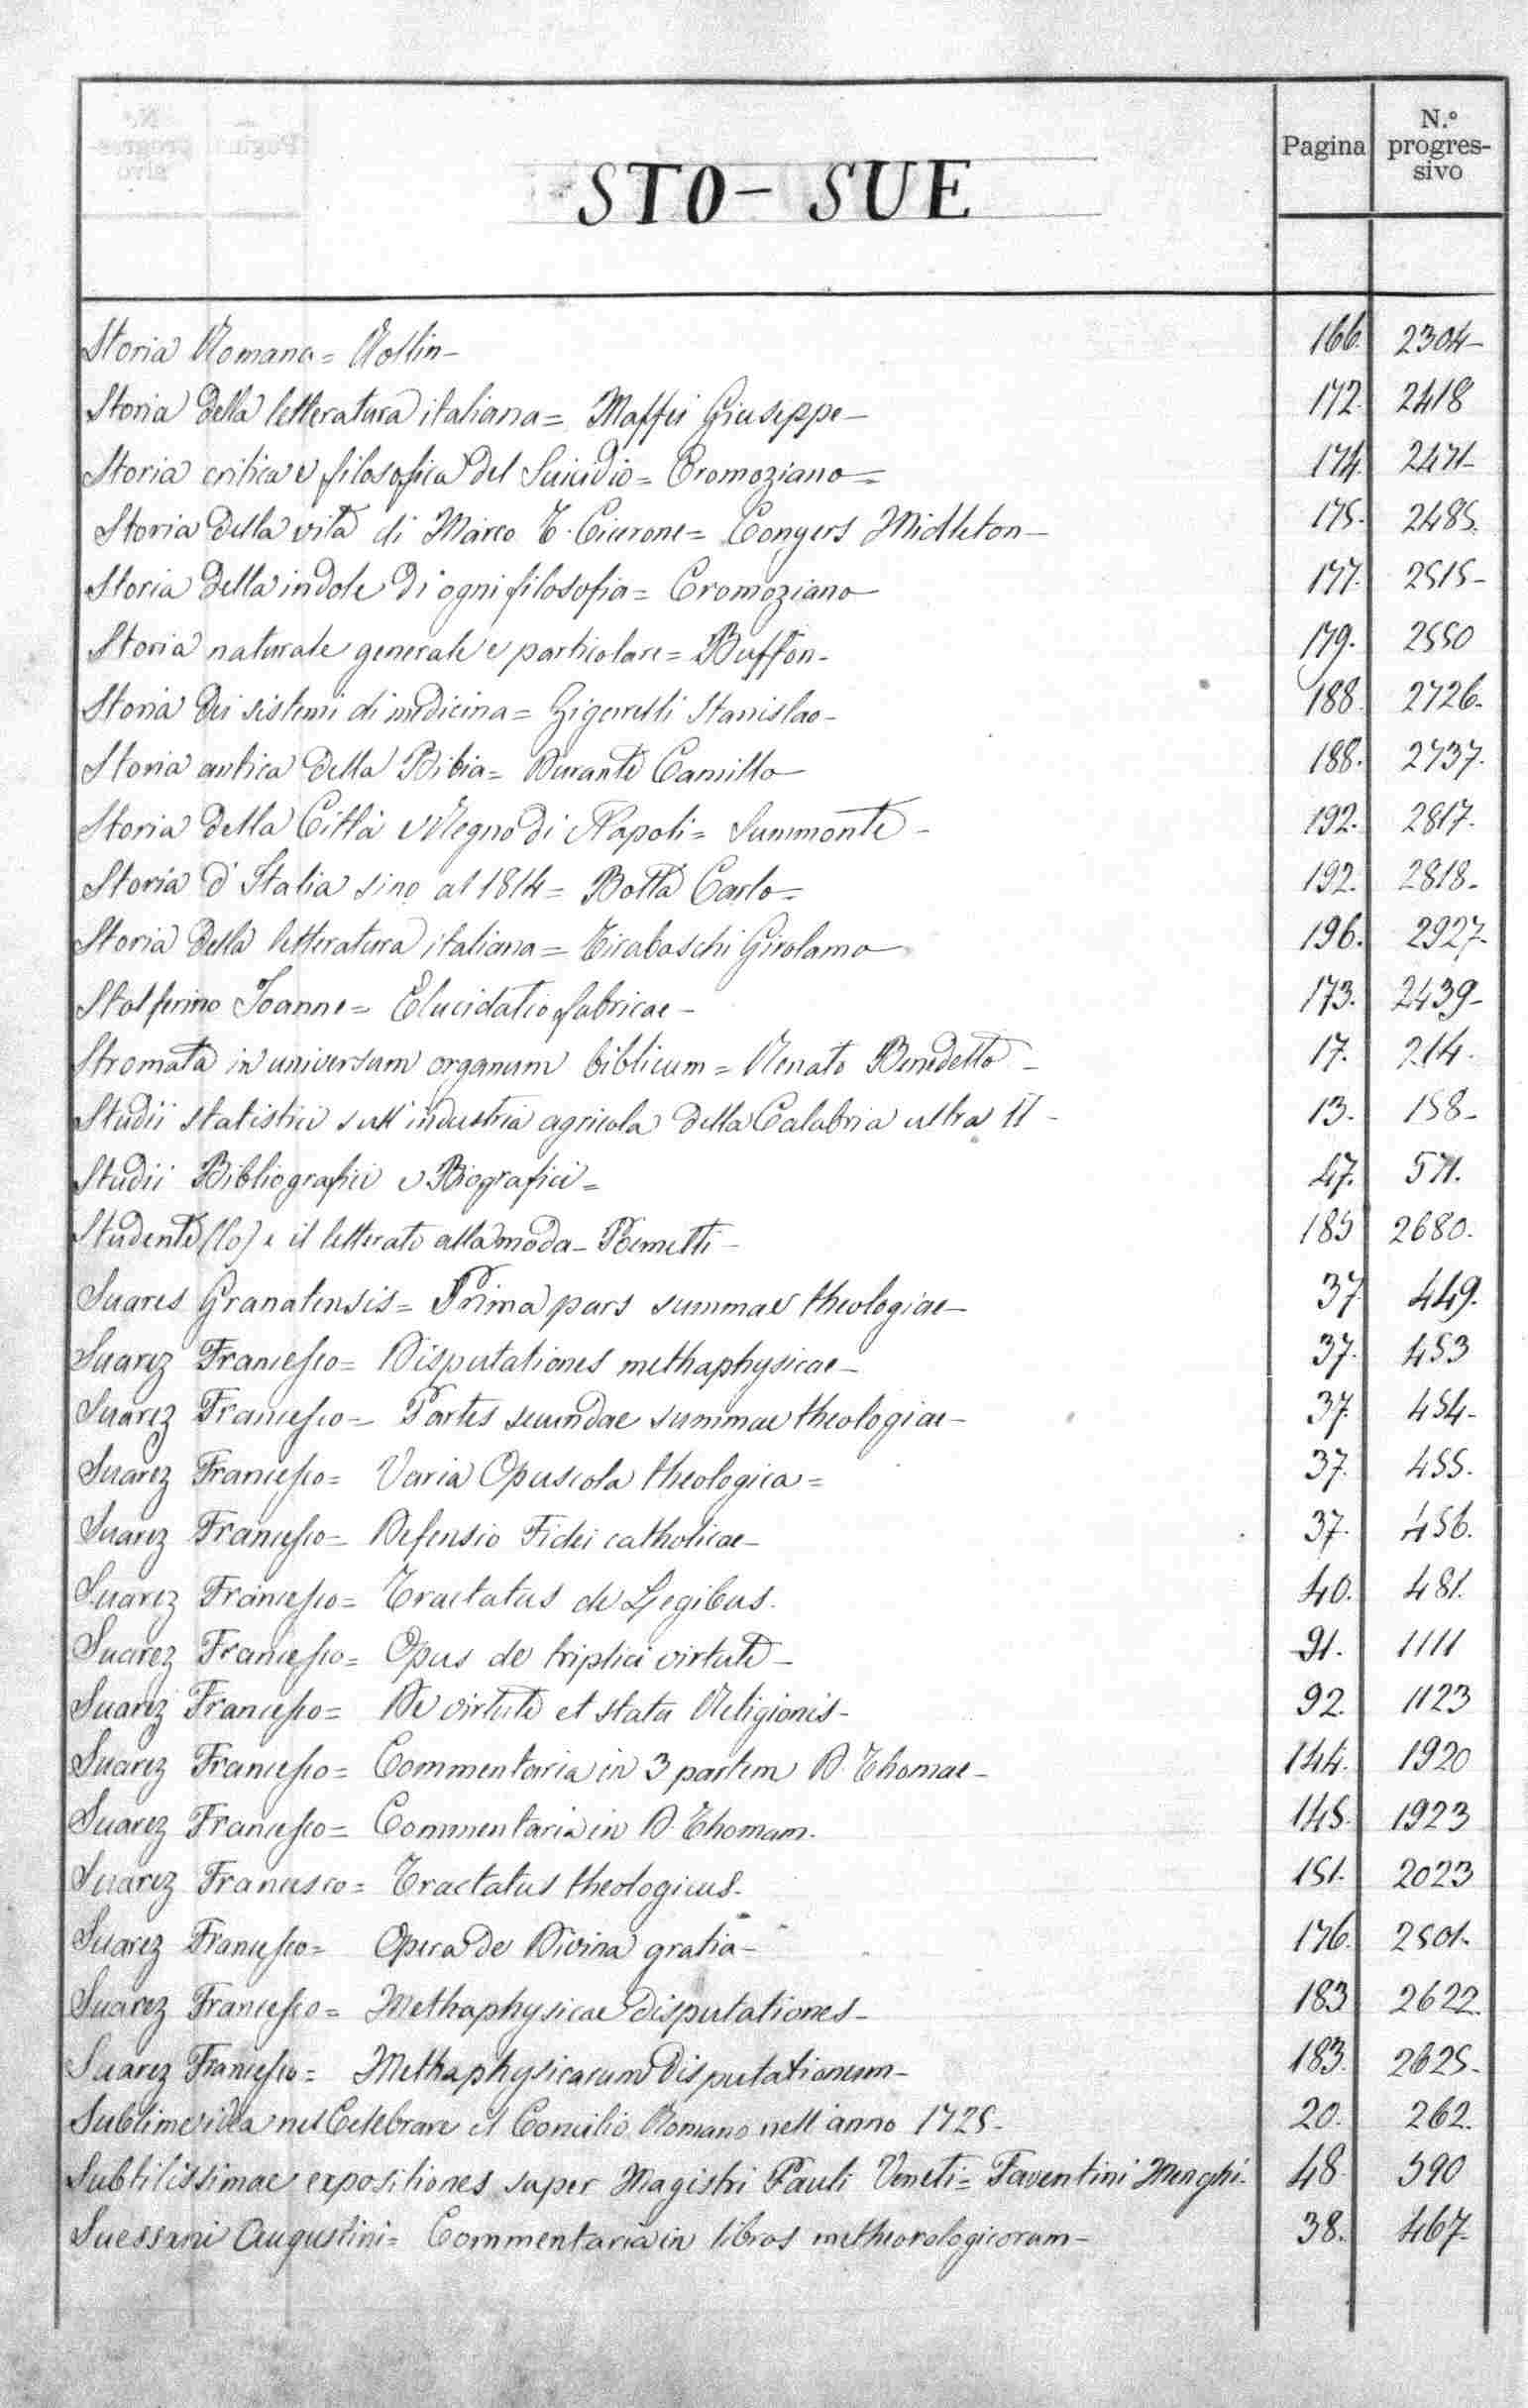 Pagina N.º progres-sivo
STO - SUE
Storia Romana = Rollin - 166. 2304 -
Storia della letteratura italiana = Maffei Giuseppe - 172. 2418
Storia critica e filosofica del Suicidio = Cromoziano = 174. 2471 -
Storia della vita di Marco T. Cicerone = Conyers Midleton - 175. 2485.
Storia della indole di ogni filosofia = Cromoziano - 177. 2515 -
Storia naturale generale e particolare = Buffon - 179. 2550
Storia dei sistemi di medicina = Zigarelli Stanislao - 188. 2726.
Storia antica della Bibia = Durante Camillo - 188. 2737.
Storia della Città e Regno di Napoli = Summonte - 192. 2817.
Storia d'Italia sino al 1814 = Botta Carlo = 192. 2818 -
Storia della letteratura italiana = Tiraboschi Girolamo 196. 2927 -
Stolferino Joanne = Elucidatio fabricae - 173. 2439 -
Stromata in universum organum biblicum = Renato Benedetto - 17. 214.
Studii statistici sull'industria agricola della Calabria ultra II - 13. 158 -
Studii Bibliografici e Biografici = 47. 571.
Studente (lo) e il letterato alla moda - 185 2680.
Suares Granatensis = Prima pars summae theologiae - 37. 449.
Suarez Francesco = Disputationes methaphysicae - 37. 453
Suarez Francesco = Partes secundae summae theologiae - 37. 454 -
Suarez Francesco = Varia Opuscola theologica = 37. 455.
Suarez Francesco = Defensio Fidei catholicae - 37. 456.
Suarez Francesco = Tractatus de Legibus. 40. 481.
Suarez Francesco = Opus de triplici virtute - 91. 1111
Suarez Francesco = De virtute et statu Religionis - 92. 1123
Suarez Francesco = Commentaria in 3 partem D. Thomae - 144. 1920
Suarez Francesco = Commentaria in D. Thomam. 145. 1923
Suarez Francesco = Tractatus theologicus. 151. 2023
Suarez Francesco = Opera de Divina gratia - 176. 2501.
Suarez Francesco = Methaphysicae disputationes - 183 2622.
Suarez Francesco = Methaphysicarum disputationum - 183. 2625 -
Sublime idea nel Celebrare il Concilio Romano nell'anno 1725 - 20. 262.
Subtilissimae expositiones super Magistri Pauli Veneti = Faventini Menghi. 48. 590
Suessani Augustini = Commentaria in libros metheorologicorum - 38. 467 -